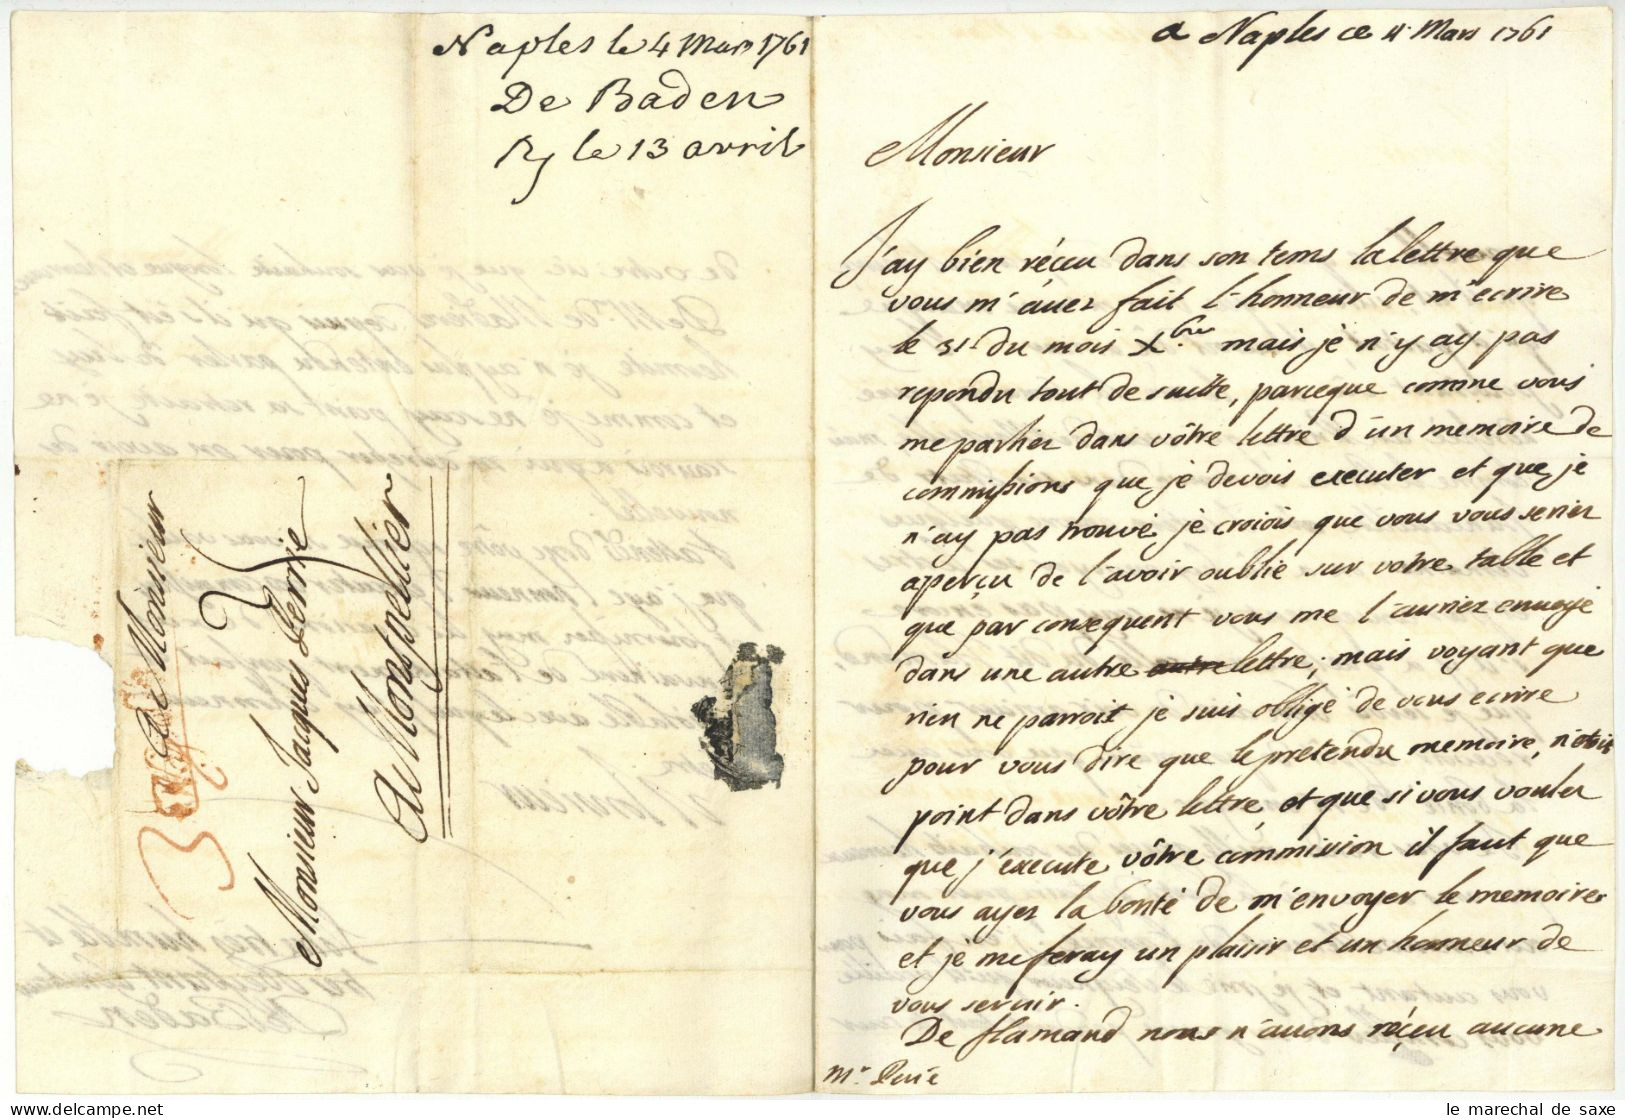 Naples le 4 Mars 1761
De Baden
Ry le 13 avril
A Monsieur
Monsieur Jaques Perrie
A Montpellier
a Naples ce 4 Mars 1761
Monsieur
J'ay bien réçeu dans son tems la lettre que
vous m'àuez fait l'honneur de m'ecrire
le 31 du mois Xbre mais je n'y ay pas
repondu tout de suitte, parceque comme vous
me parliez dans vôtre lettre d'un memoire de
commissions que je devois executer et que je
n'ay pas trouvé je croiois que vous vous seriez
aperçu de l'avoir oublié sur votre table et
que par consequent vous me l'auriez envoyé
dans une autre autre lettre; mais voyant que
rien ne parroit je suis obligé de vous ecrire
pour vous dire que le pretendu memoire, n'etoit
point dans vôtre lettre, et que si vous voulez
que j'execute vôtre commission il faut que
vous ayez la bonté de m'envoyer le memoire
et je me feray un plaisir et un honneur de
vous servir.
De flamand nous n'avons réçeu aucune
Mr Perié
le marechal de saxe